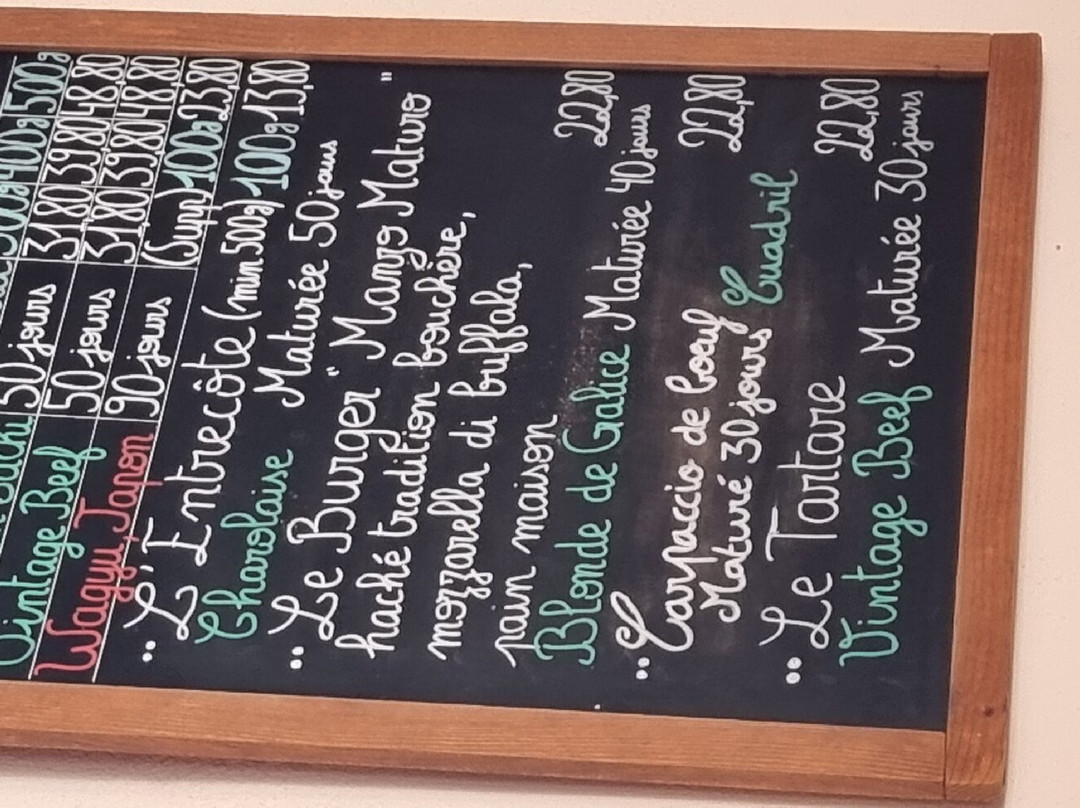 300g 400g 500g
50 jours 31,80 39,80 48,80
Vintage Beef 50 jours 31,80 39,80 48,80
Wagyu, Japon 90 jours (Supp) 100g 23,80
•• L'Entrecôte (min 500g) 100g 13,80
Charolaise Maturée 50 jours
•• Le Burger "Manzo Maturo"
haché tradition bouchère,
mozzarella di buffala,
pain maison 22,80
Blonde de Galice Maturée 40 jours
•• Carpaccio de boeuf 22,80
Maturé 30 jours Cuadril
•• Le Tartare 22,80
Vintage Beef Maturée 30 jours